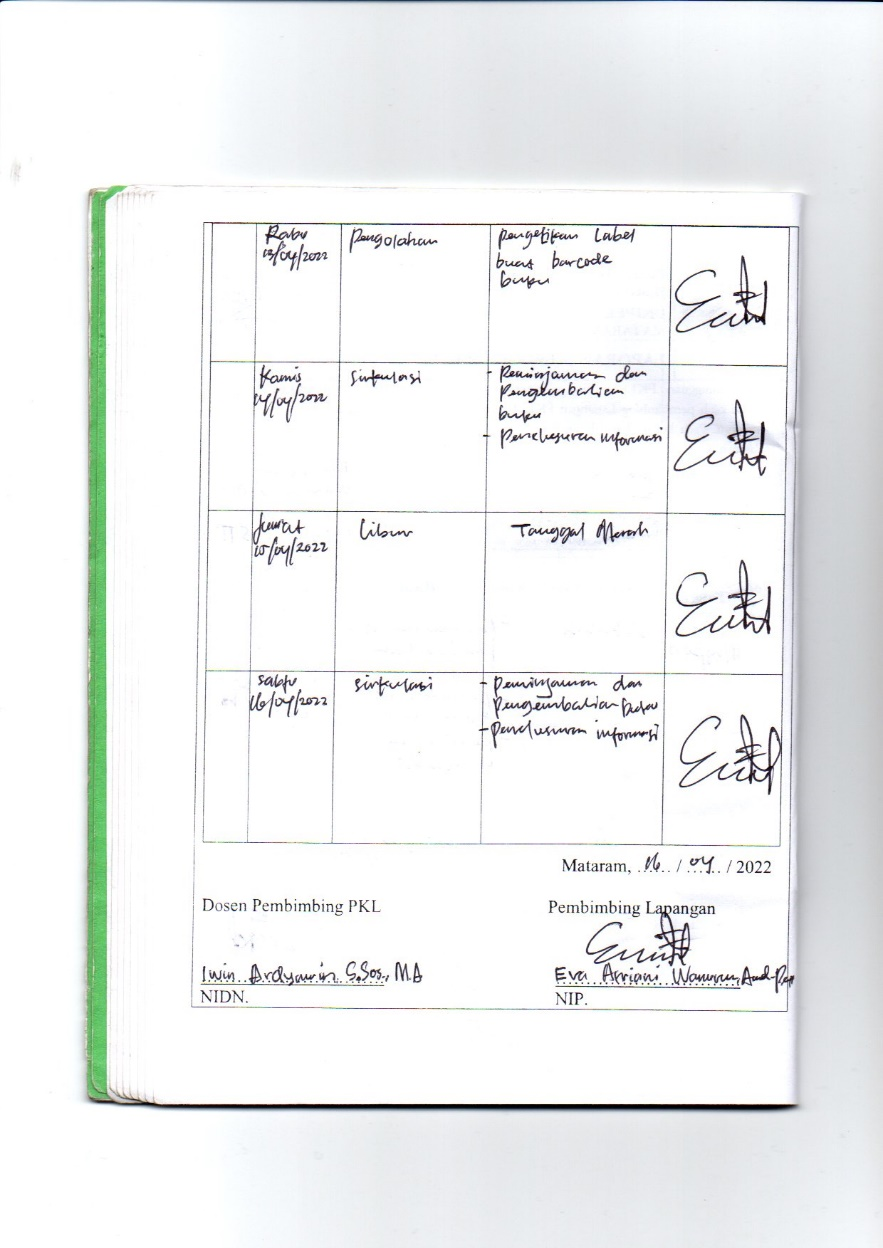 Rabu
13/04/2022
pengolahan
pengetikan Label
buat barcode
buku
Kamis
14/04/2022
sirkulasi
- Peminjaman dan
Pengembalian
buku
- Penelusuran informasi
Jum'at
15/04/2022
Libur
Tanggal Merah
sabtu
16/04/2022
sirkulasi
- peminjaman dan
pengembalian buku
- penelusuran informasi
Mataram, 16 / 04 / 2022
Dosen Pembimbing PKL
Pembimbing Lapangan
Iwin Ardyawin S.Sos., MA
Eva Arriani
NIDN.
NIP.